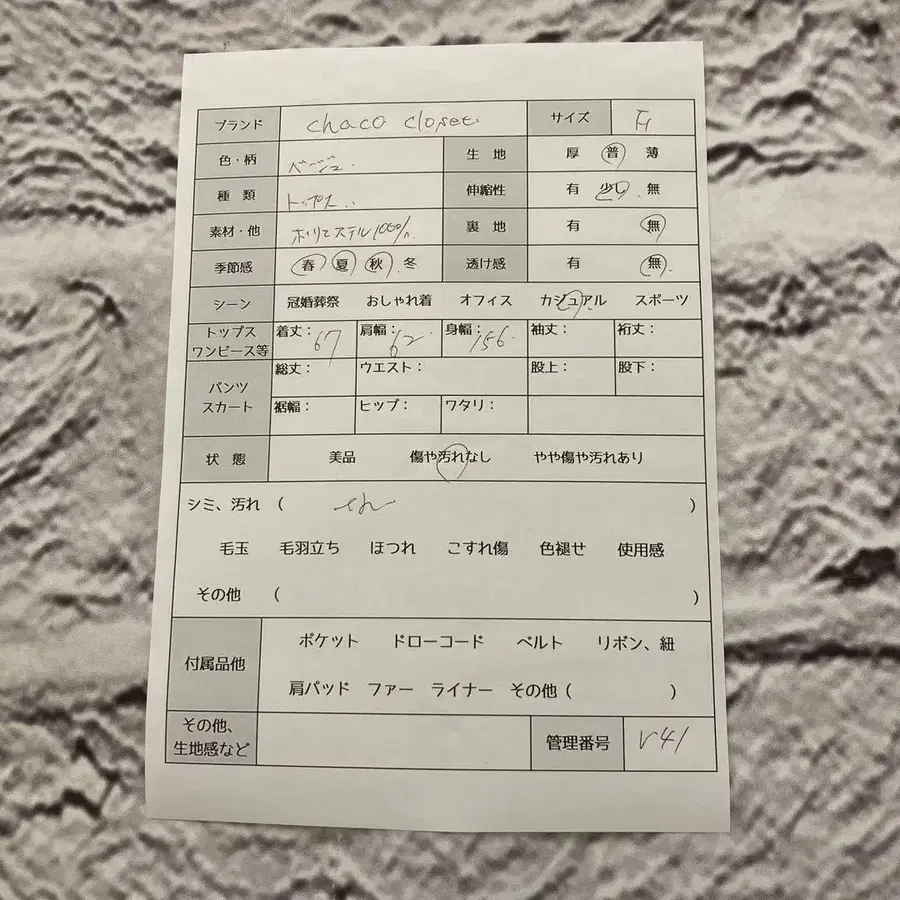 ブランド chaco closet. サイズ F
色・柄 ベージュ. 生地 厚 普 薄
種類 トップス.. 伸縮性 有 少し 無
素材・他 ポリエステル100% 裏地 有 無
季節感 春 夏 秋 冬 透け感 有 無
シーン 冠婚葬祭 おしゃれ着 オフィス カジュアル スポーツ
トップス
ワンピース等 着丈:67 肩幅:62 身幅:156 袖丈: 裄丈:
パンツ
スカート 総丈: ウエスト: 股上: 股下:
裾幅: ヒップ: ワタリ:
状態 美品 傷や汚れなし やや傷や汚れあり
シミ、汚れ ( )
毛玉 毛羽立ち ほつれ こすれ傷 色褪せ 使用感
その他 ( )
付属品他 ポケット ドローコード ベルト リボン、紐
肩パッド ファー ライナー その他 ( )
その他、
生地感など 管理番号 V41